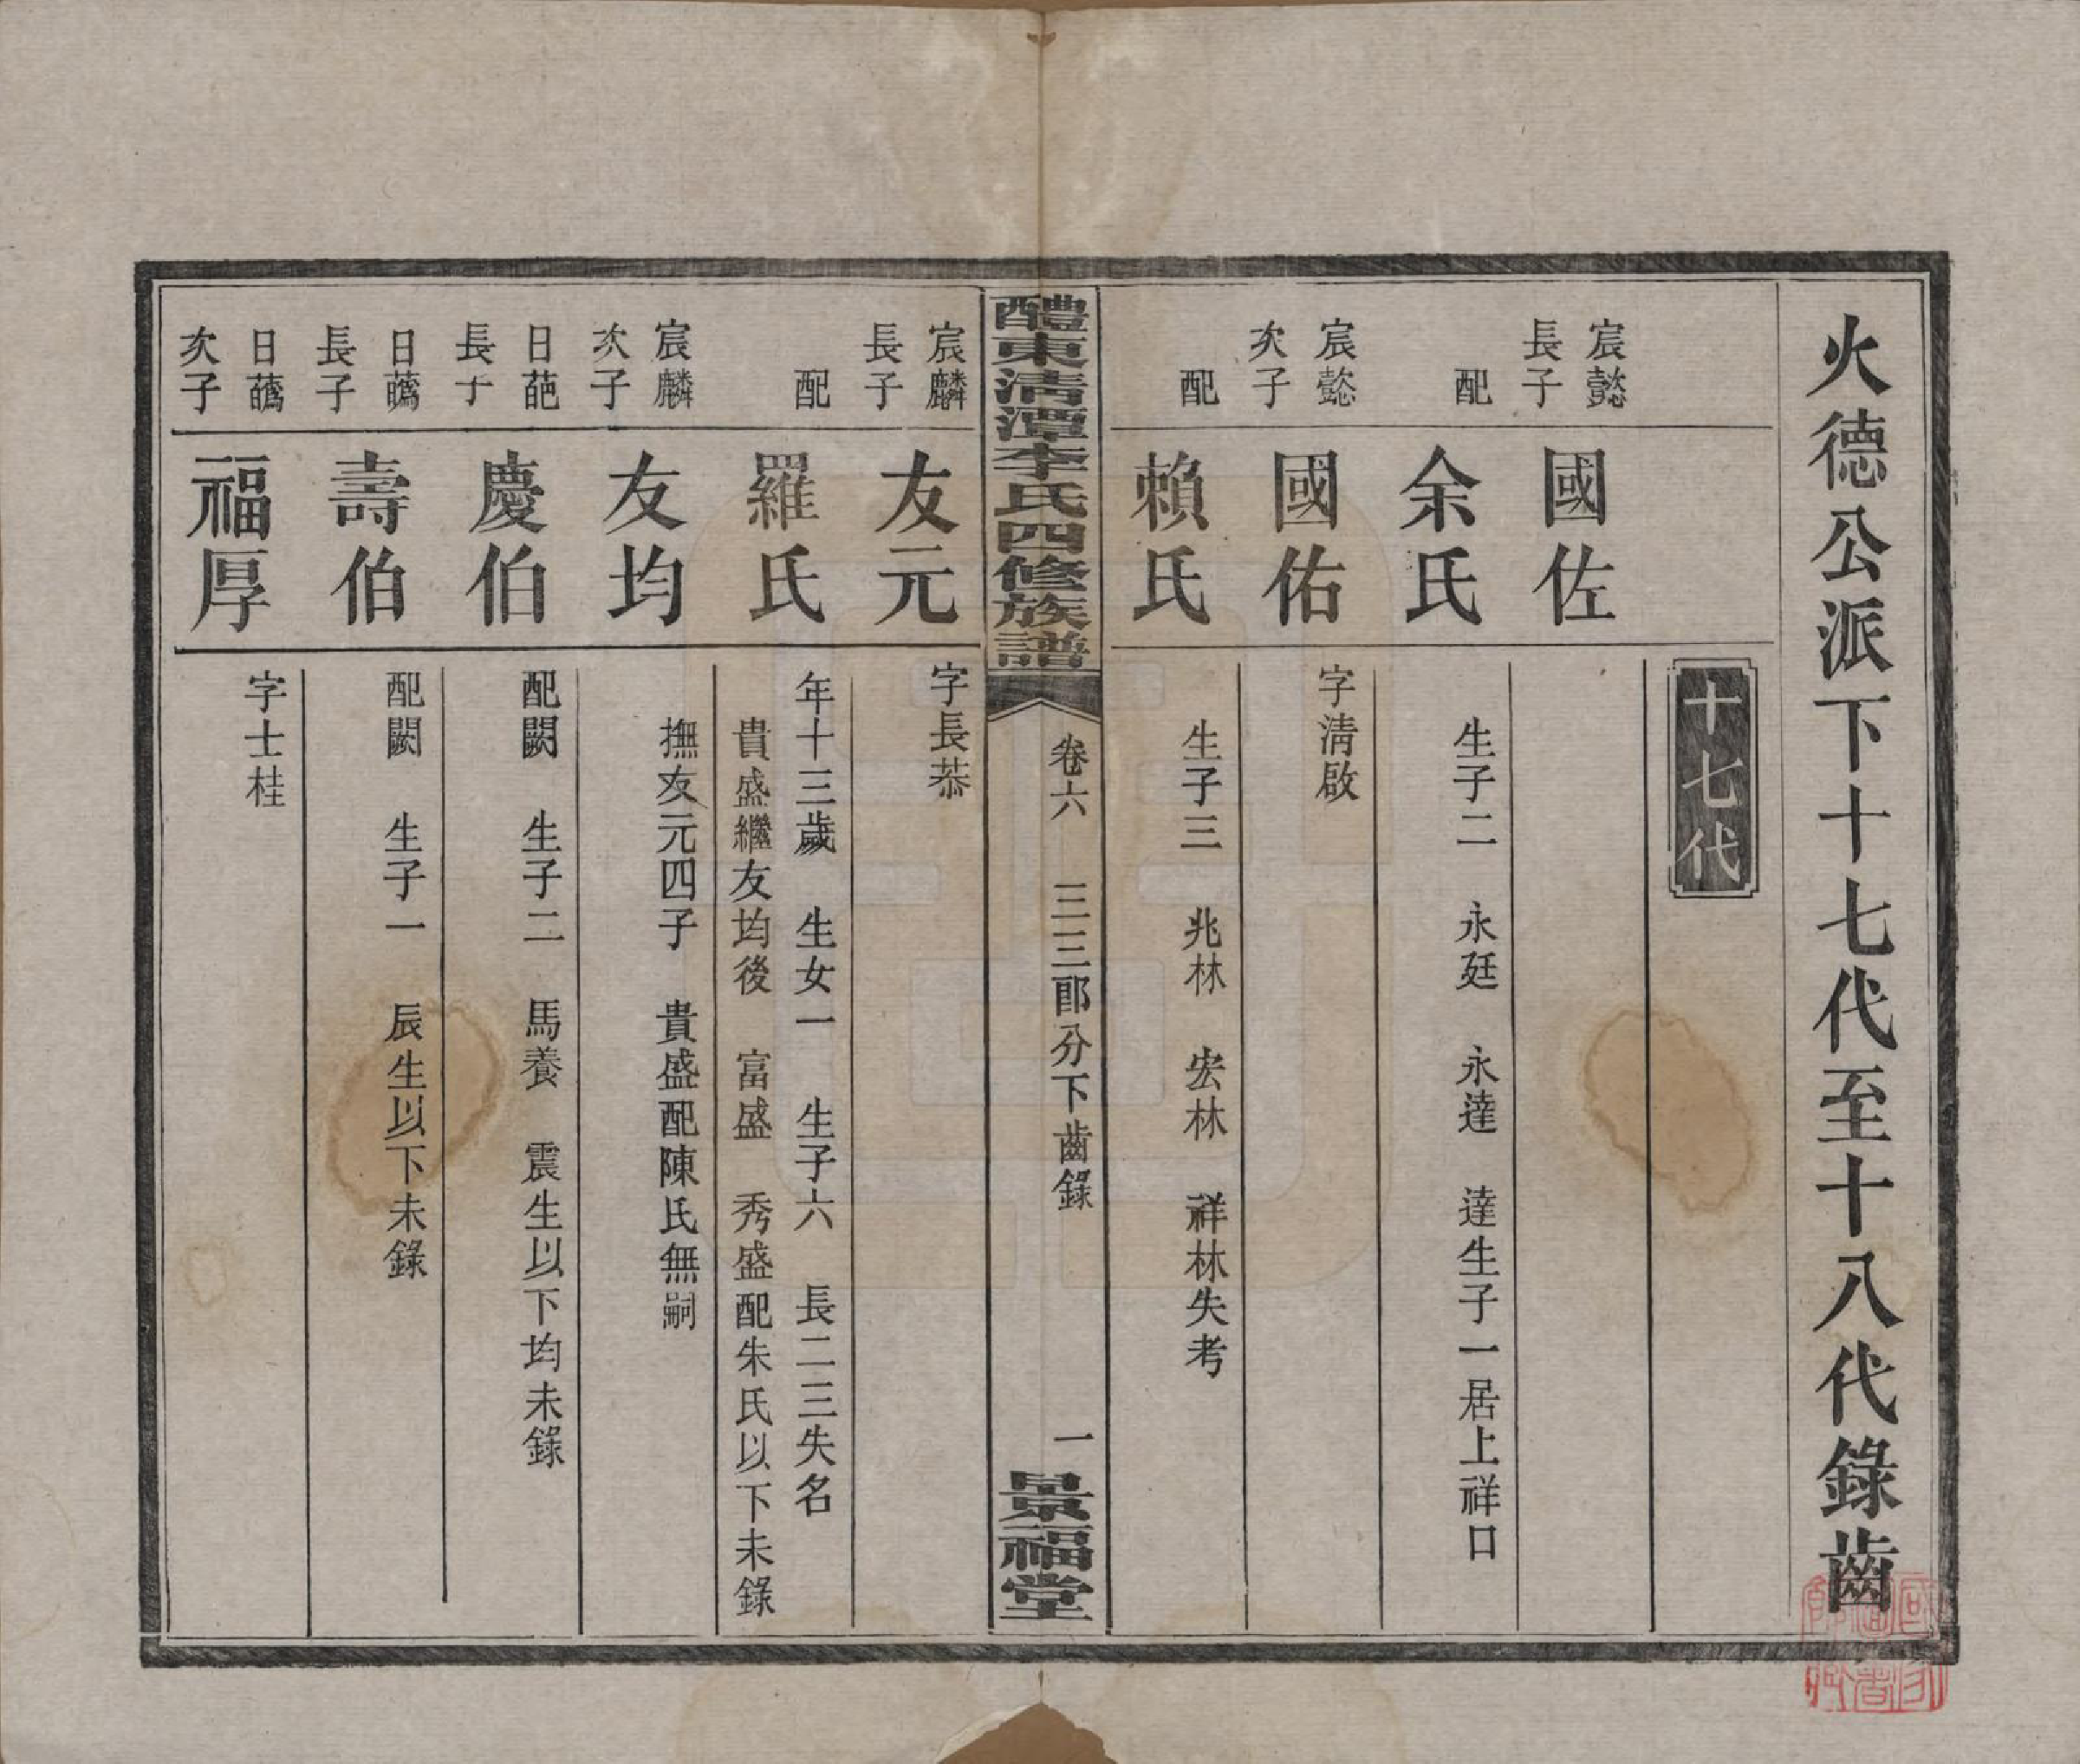 火德公派下十七代至十八代錄齒
十七代
宸懿
長子
國佐
配
余氏
生子二　永廷　永達　達生子一居上祥口
宸懿
次子
國佑
字清啟
配
賴氏
生子三　兆林　宏林　祥林失考
醴東清潭李氏四修族譜
卷六　三三郎分下齒錄
一
景福堂
宸麟
長子
友元
字長恭
配
羅氏
年十三歲　生女一　生子六　長二三失名
貴盛繼友均後　富盛　秀盛配朱氏以下未錄
宸麟
次子
友均
撫友元四子　貴盛配陳氏無嗣
日葩
長子
慶伯
配闕　生子二　馬養　震生以下均未錄
日
長子
壽伯
配闕　生子一　辰生以下未錄
日
次子
福厚
字士桂